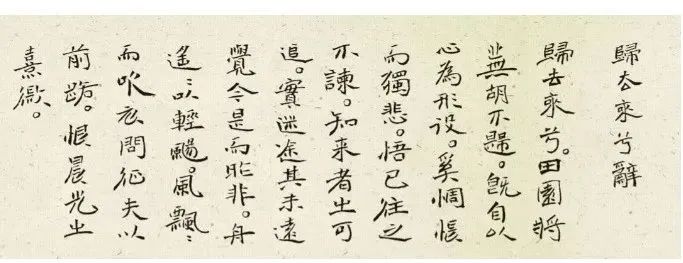 歸去來兮辭
歸去來兮。田園將
蕪胡不歸。既自以
心為形役。奚惆悵
而獨悲。悟已往之
不諫。知来者之可
追。實迷途其未遠
覺今是而昨非。舟
遙〻以輕颺。風飄〻
而吹衣問征夫以
前路。恨晨光之
熹微。